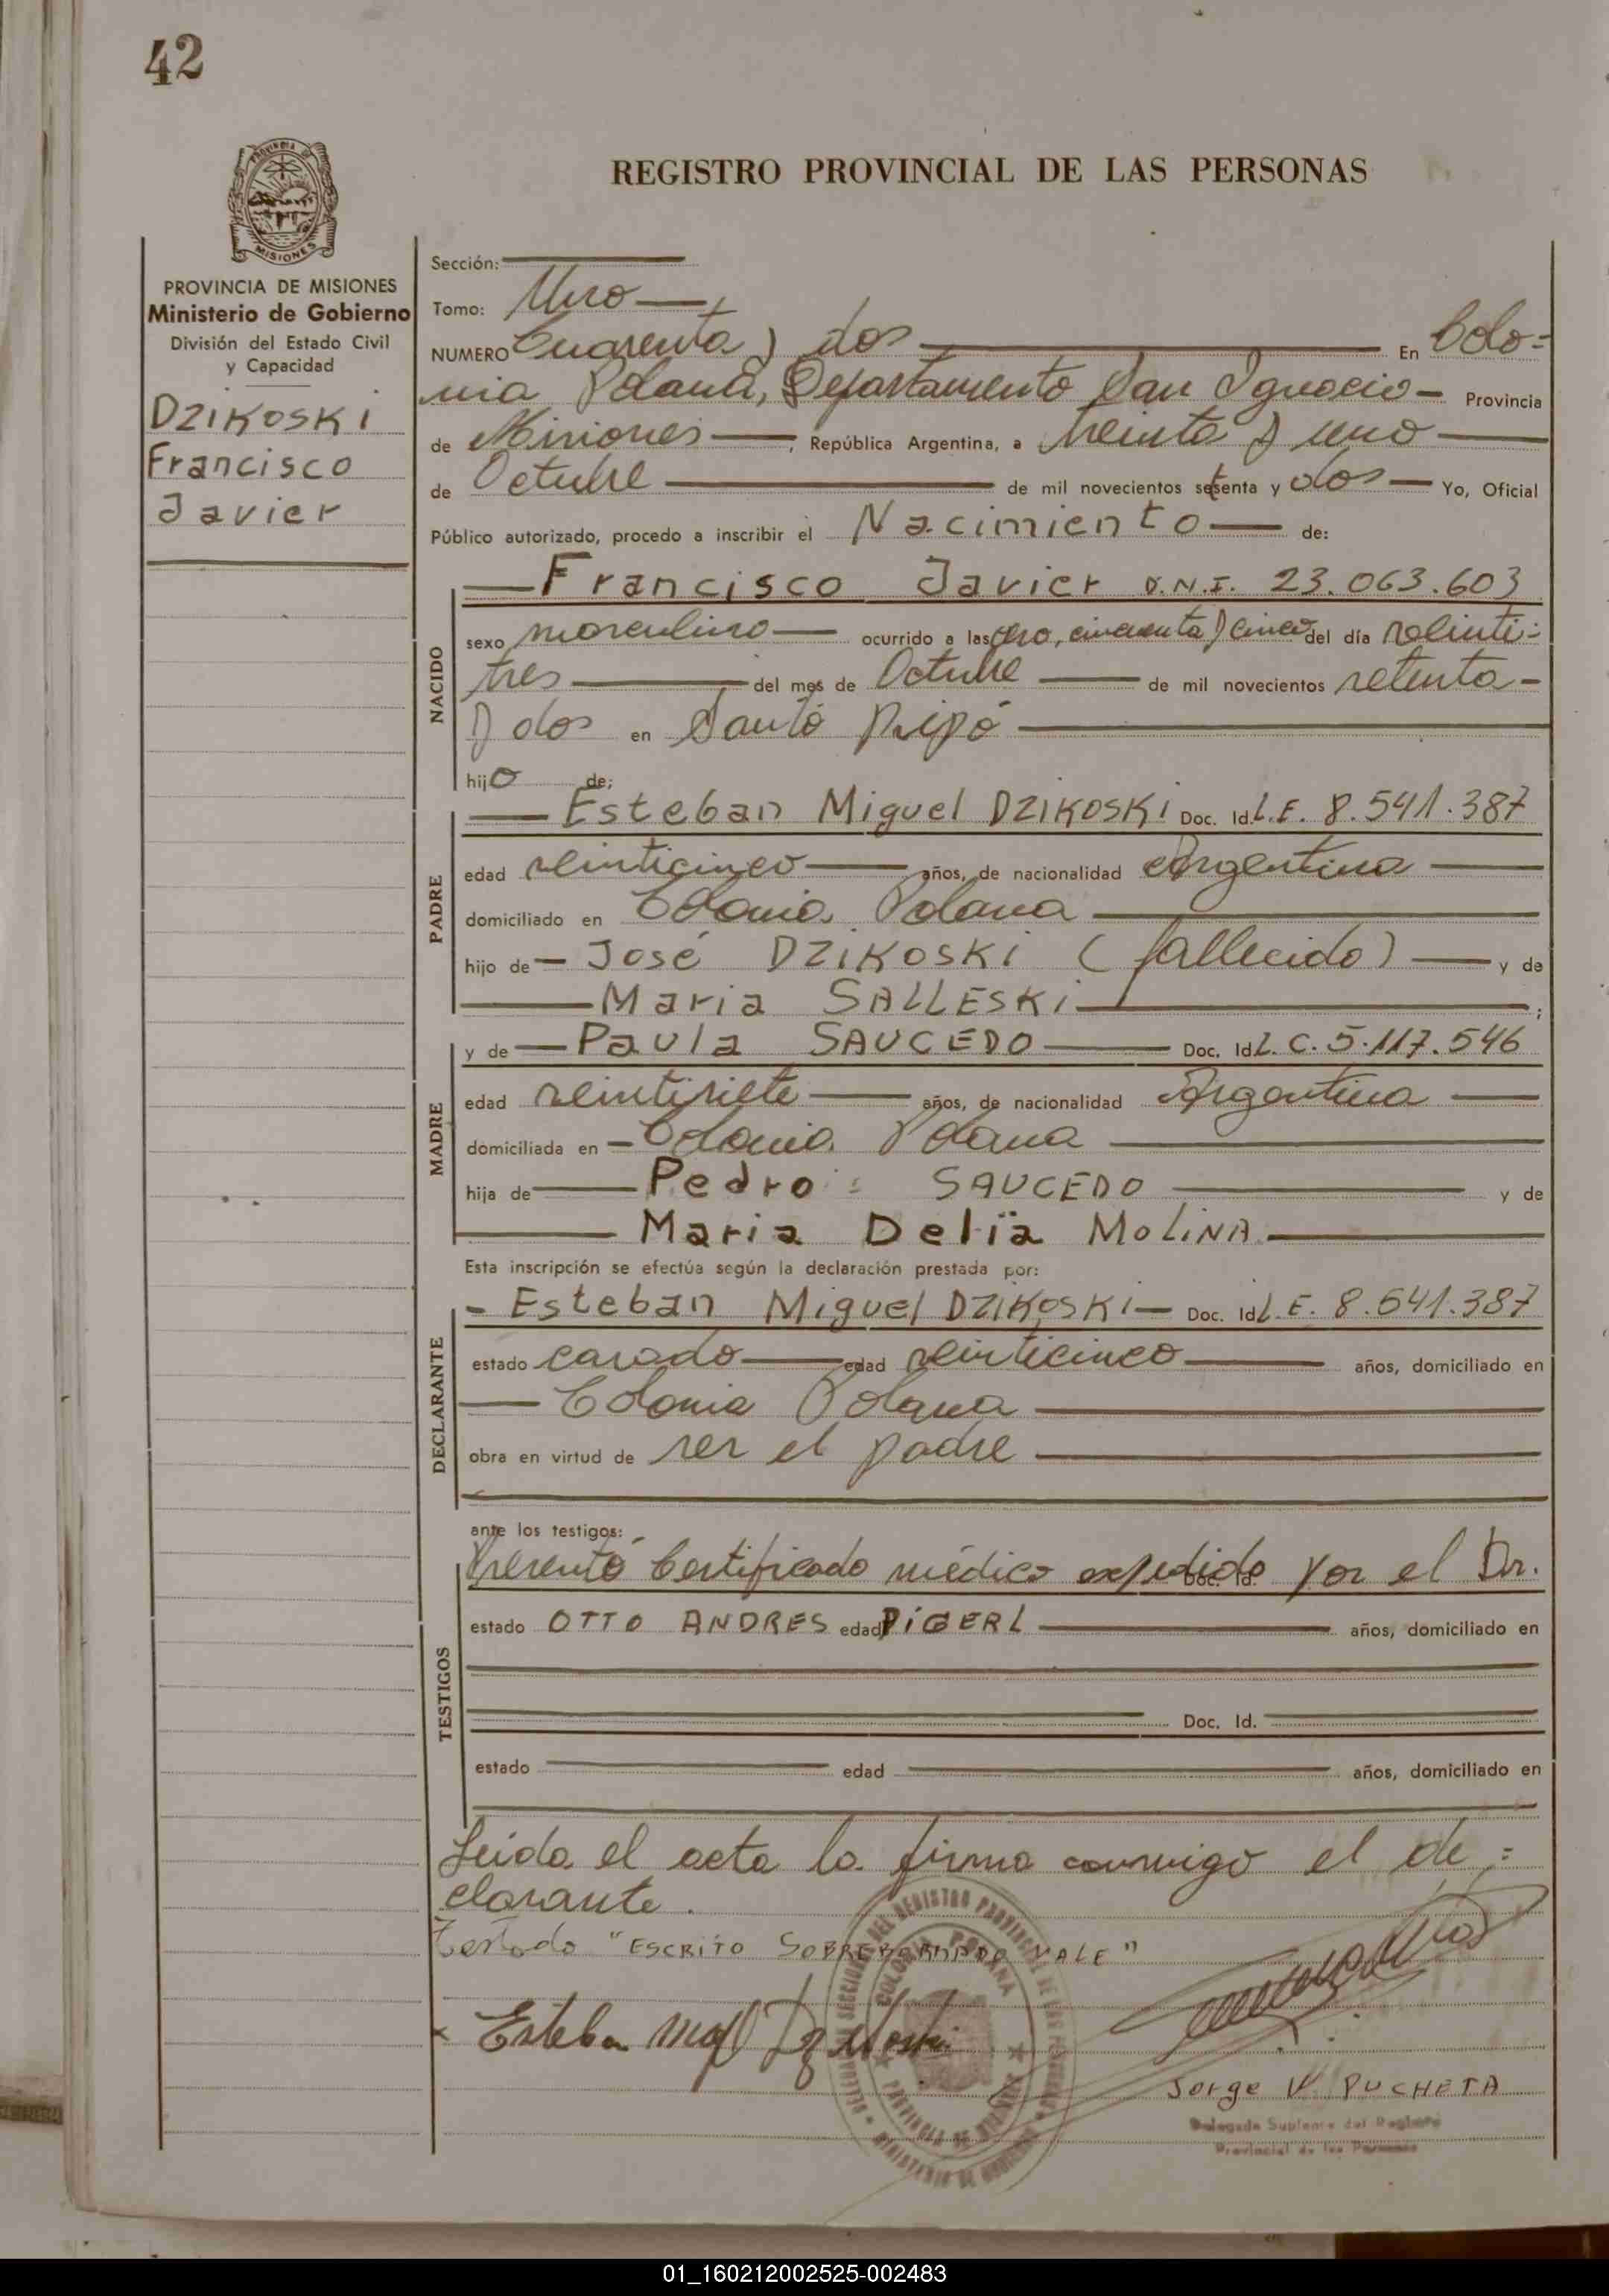 42
PROVINCIA DE
MISIONES
REGISTRO PROVINCIAL DE LAS PERSONAS
PROVINCIA DE MISIONES
Ministerio de Gobierno
División del Estado Civil
y Capacidad
DZIKOSKI
Francisco
Javier
Sección:
Tomo: Uno
NUMERO Cuarenta y dos En Colo=
nia Polana, Departamento San Ignacio- Provincia
de Misiones, República Argentina, a treinta y uno
de Octubre de mil novecientos setenta y dos Yo, Oficial
Público autorizado, procedo a inscribir el Nacimiento de:
NACIDO
Francisco Javier D.N.I. 23.063.603
sexo masculino ocurrido a las cero, cincuenta y cinco del día veinti=
tres del mes de Octubre de mil novecientos setenta-
y dos en Santo Pipó
hijo de:
PADRE
Esteban Miguel DZIKOSKI Doc. Id. L.E. 8.541.387
edad veinticinco años, de nacionalidad Argentina
domiciliado en Colonia Polana
hijo de José DZIKOSKI (fallecido) y de
Maria SALLESKI;
MADRE
y de Paula SAUCEDO Doc. Id. L.C. 5.117.546
edad veintisiete años, de nacionalidad Argentina
domiciliada en Colonia Polana
hija de Pedro SAUCEDO y de
Maria Delia MOLINA
Esta inscripción se efectúa según la declaración prestada por:
DECLARANTE
Esteban Miguel DZIKOSKI Doc. Id. L.E. 8.541.387
estado casado edad veinticinco años, domiciliado en
Colonia Polana
obra en virtud de ser el padre
ante los testigos:
TESTIGOS
Presentó Certificado médico expedido por el Dr. Doc. Id.
estado OTTO ANDRES edad PIGERL años, domiciliado en
Doc. Id.
estado edad años, domiciliado en
Leida el acta la firma conmigo el de=
clarante.
Testado "ESCRITO SOBREBORRADO VALE"
x Esteban Mgl Dzikoski
COLONIA POLANA
Jorge V. PUCHETA
Delegado Suplente del Registro
Provincial de las Personas
01_160212002525-002483